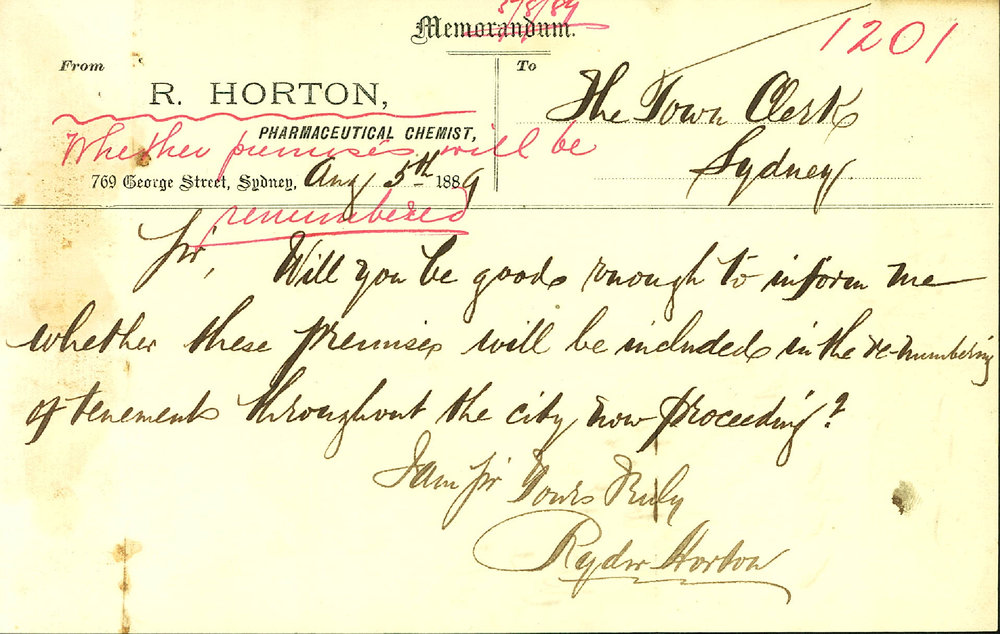 5/8/89
Memorandum.
1201
From
R. HORTON,
PHARMACEUTICAL CHEMIST,
769 George Street, Sydney, Aug 5th 1889
To
The Town Clerk
Sydney
Whether premises will be
renumbered
Sir,
Will you be good enough to inform me
whether these premises will be included in the re-numbering
of tenements throughout the city now proceeding?
I am Sir Yours Truly
Ryder Horton